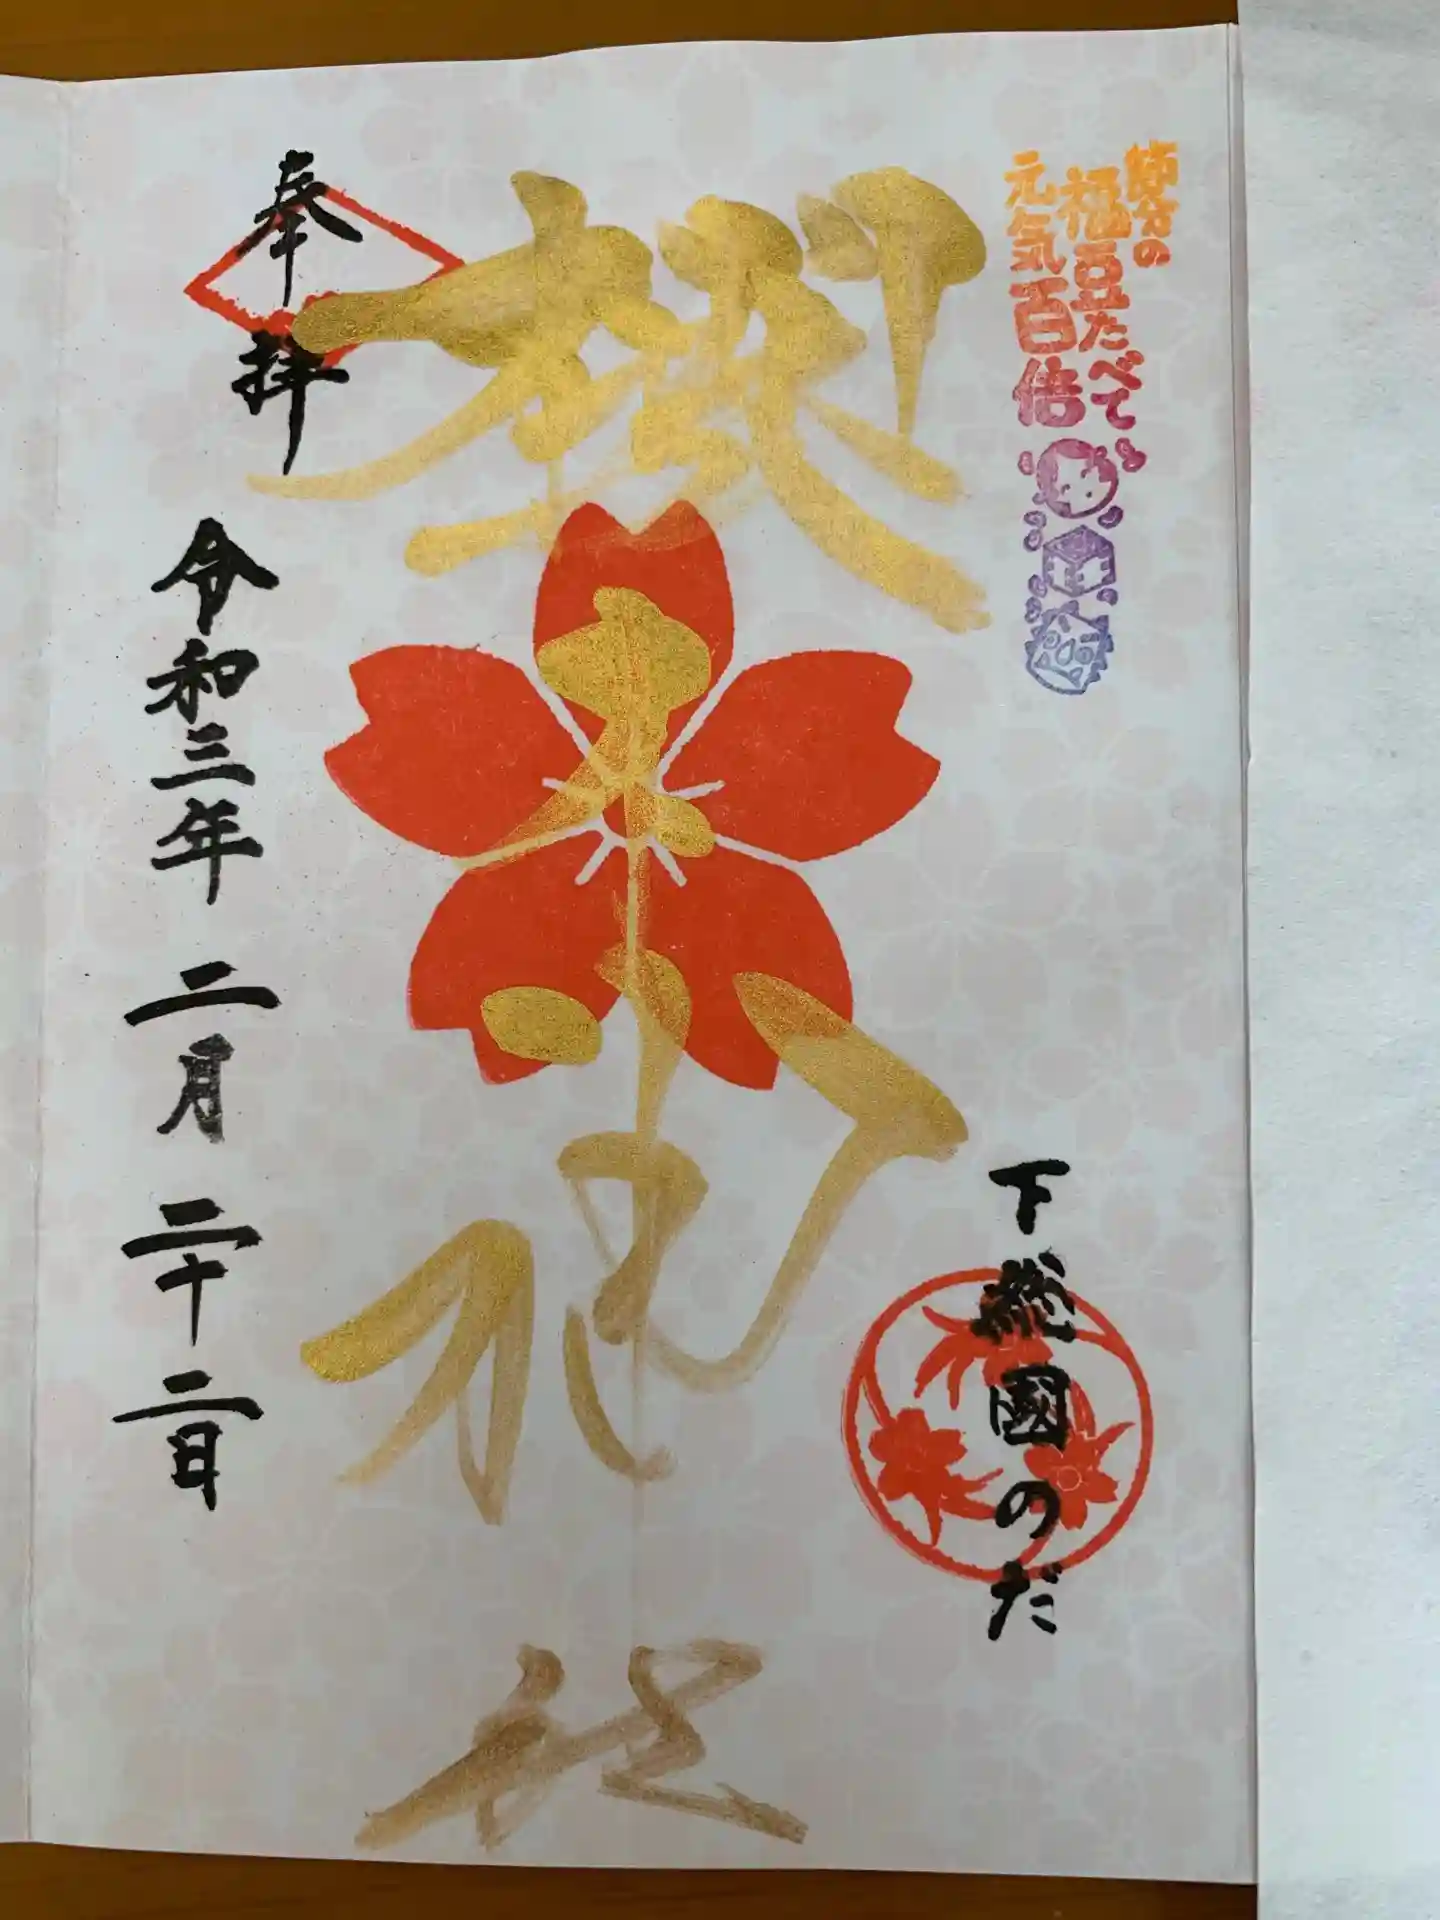 節分の
福豆たべて
元気百倍
下総國のだ
櫻木神社
奉拝
令和三年 二月 二十二日